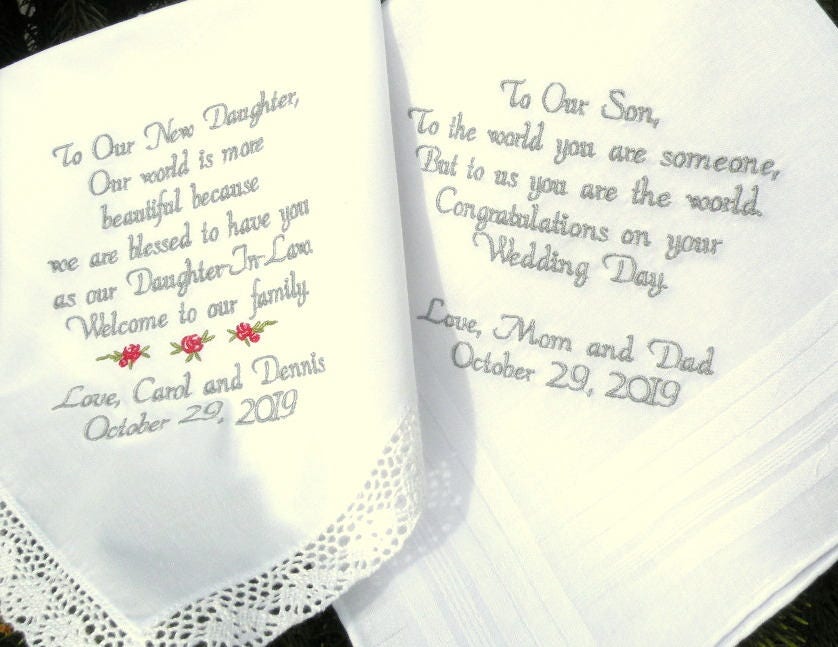 To Our New Daughter,
Our world is more
beautiful because
we are blessed to have you
as our Daughter-In-Law.
Welcome to our family.
Love, Carol and Dennis
October 29, 2019
To Our Son,
To the world you are someone,
But to us you are the world.
Congratulations on your
Wedding Day.
Love, Mom and Dad
October 29, 2019